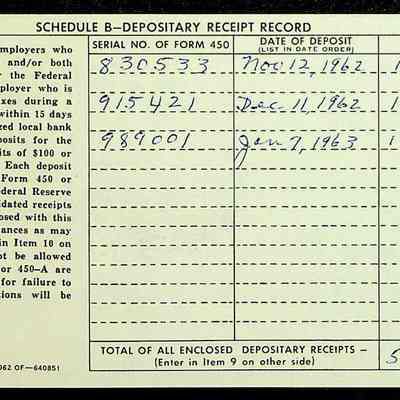 SCHEDULE B—DEPOSITARY RECEIPT RECORD
SERIAL NO. OF FORM 450
DATE OF DEPOSIT
(LIST IN DATE ORDER)
830533 Nov 12, 1962 1
915421 Dec 11, 1962 1
989001 Jan 7, 1963 1
TOTAL OF ALL ENCLOSED DEPOSITARY RECEIPTS –
(Enter in Item 9 on other side)
5
mployers who
and/or both
r the Federal
ployer who is
xes during a
within 15 days
zed local bank
posits for the
its of $100 or
Each deposit
Form 450 or
ederal Reserve
idated receipts
osed with this
ances as may
in Item 10 on
ot be allowed
or 450–A are
for failure to
tions will be
962 OF—640851